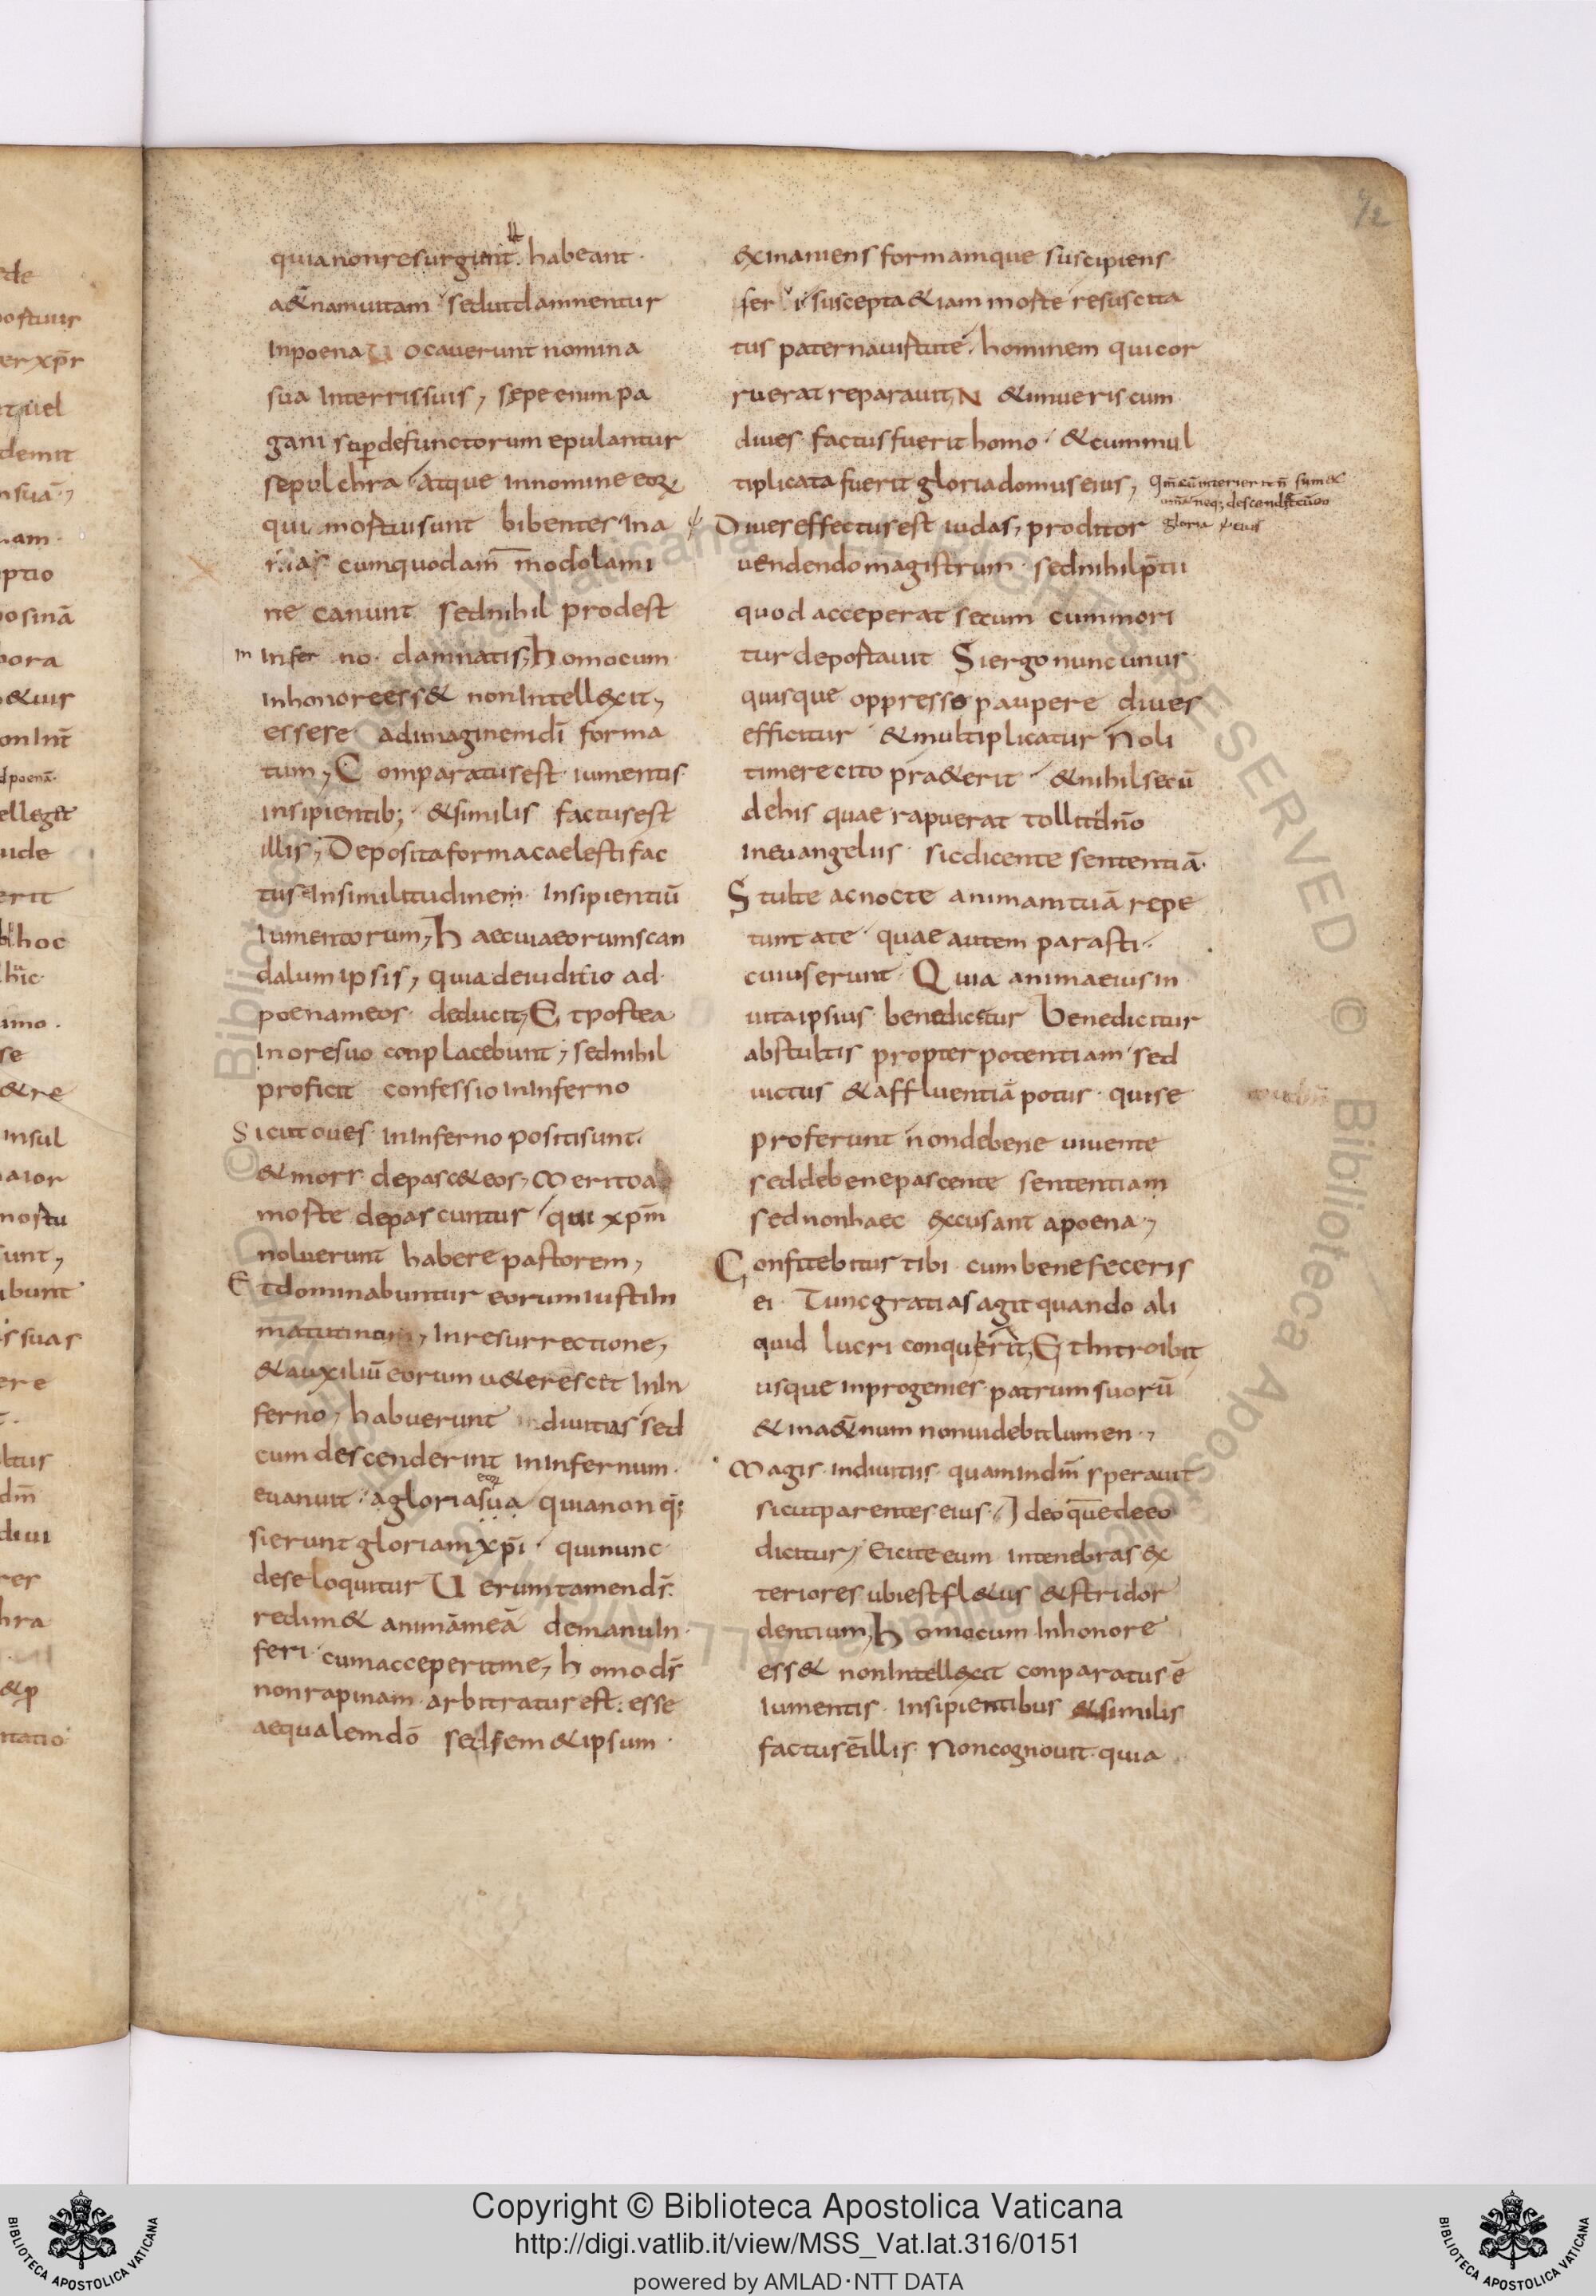 92
quia non resurgunt. habeant
a&ernam uitam sed ut damnentur
In poena Uocauerunt nomina
sua In terris suis, sepe enim pa
gani sup defunctorum epulantur
sepulchra atque in nomine eorꝝ
qui mortui sunt bibentes In a
cum quodam modolami
ne canunt sed nihil prodest
in Inferno damnatis, homo cum
In honore ess& non Intellexit,
essese ad imaginem dī forma
tum, Comparatus est iumentis
insipientib; & similis factus est
illis, Deposita forma caelesti fac
tus e In similitudinem Insipientiū
Iumentorum, haec uia eorum scan
dalum ipsis, quia de iuditio ad
poenam eos deducit, Et postea
In ore suo conplacebunt, sed nihil
proficit confessio In Inferno
Sicut oues In Inferno positi sunt.
& mors depasc& eos, Merito a
morte depascuntur qui xp̄m
noluerunt habere pastorem,
Et dominabuntur eorum iusti In
matutinum, In resurrectione,
& auxiliū eorum u&erescet In In
ferno, habuerunt diuitias sed
cum descenderint In Infernum.
eorꝝ
euanuit a gloria sua quia non q;
sierunt gloriam xp̄i qui nunc
de se loquitur Uerumtamen ds̄
redim& animā meā de manu In
feri cum acceperit me, homo ds̄
non rapinam arbitratus est. esse
aequalem dō sed sem&ipsum
exinaniens formamque suscipiens
seruī suscepta & iam morte resuscita
tus paterna uirtute, hominem qui cor
ruerat reparauit, N & imueris cum
diues factus fuerit homo & cum mul
tiplicata fuerit gloria domus eius,
Diues effectus est iudas, proditor
gloria eius
uendendo magistrum sed nihil p̄tii
quod acceperat secum cum mori
tur deportauit Si ergo nunc unus
quisque oppresso paupere diues
efficitur & multiplicatur Noli
timere cito pra&erit & nihil secū
de his quae rapuerat tollit dn̄o
In euangeliis sic dicente sententiā
Stulte ac nocte animam tuā repe
tunt a te quae autem parasti.
cuius erunt Quia anima eius in
uita ipsius benedicetur benedicitur
abstultis propter potentiam sed
uictus & affluentiā potus qui se
proferunt non de bene uiuente
sed de bene pascente sententiam
sed non haec excusant a poena,
Confitebitur tibi cum benefeceris
ei Tunc gratias agit quando ali
quid lucri conquerit, Et Introibit
usque in progenies patrum suorū
& in a&ernum non uidebit lumen,
Magis in diuitiis quam In dm̄ sperauit
sicut parentes eius, Ideoque de eo
dicitur, Eicite eum in tenebras ex
teriores ubi est fl&us & stridor
dentium, homo cum In honore
ess& non Intellexit conparatus ē
Iumentis Insipientibus & similis
factus ē illis Non cognouit quia
Copyright © Biblioteca Apostolica Vaticana
http://digi.vatlib.it/view/MSS_Vat.lat.316/0151
powered by AMLAD·NTT DATA
BIBLIOTECA APOSTOLICA VATICANA
BIBLIOTECA APOSTOLICA VATICANA